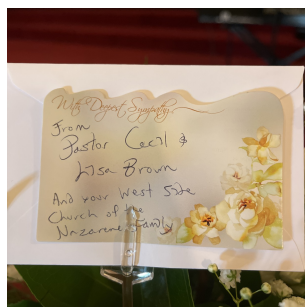 With Deepest Sympathy
From
Pastor Cecil &
Lisa Brown
And your West Side
Church of the
Nazarene Family